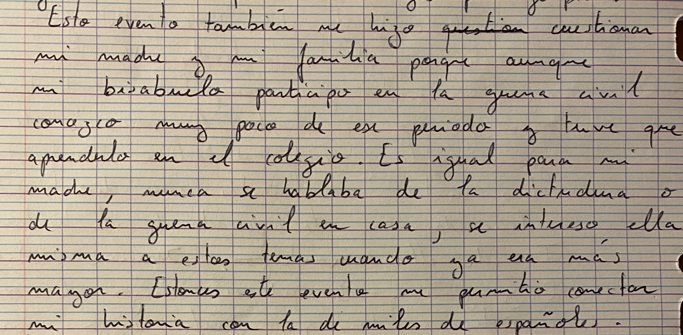 Esto evento también me hizo question cuestionar
mi madre y mi familia porque aunque
mi bisabuelo participo en la guerra civil
conozco muy poco de ese periodo y tuve que
aprenderlo en el colegio. Es igual para mi
madre, nunca se hablaba de la dictadura o
de la guerra civil en casa, se intereso ella
misma a estos temas cuando ya era más
mayor. Estonces este evento me permitió conectar
mi historia con la de miles de españoles.